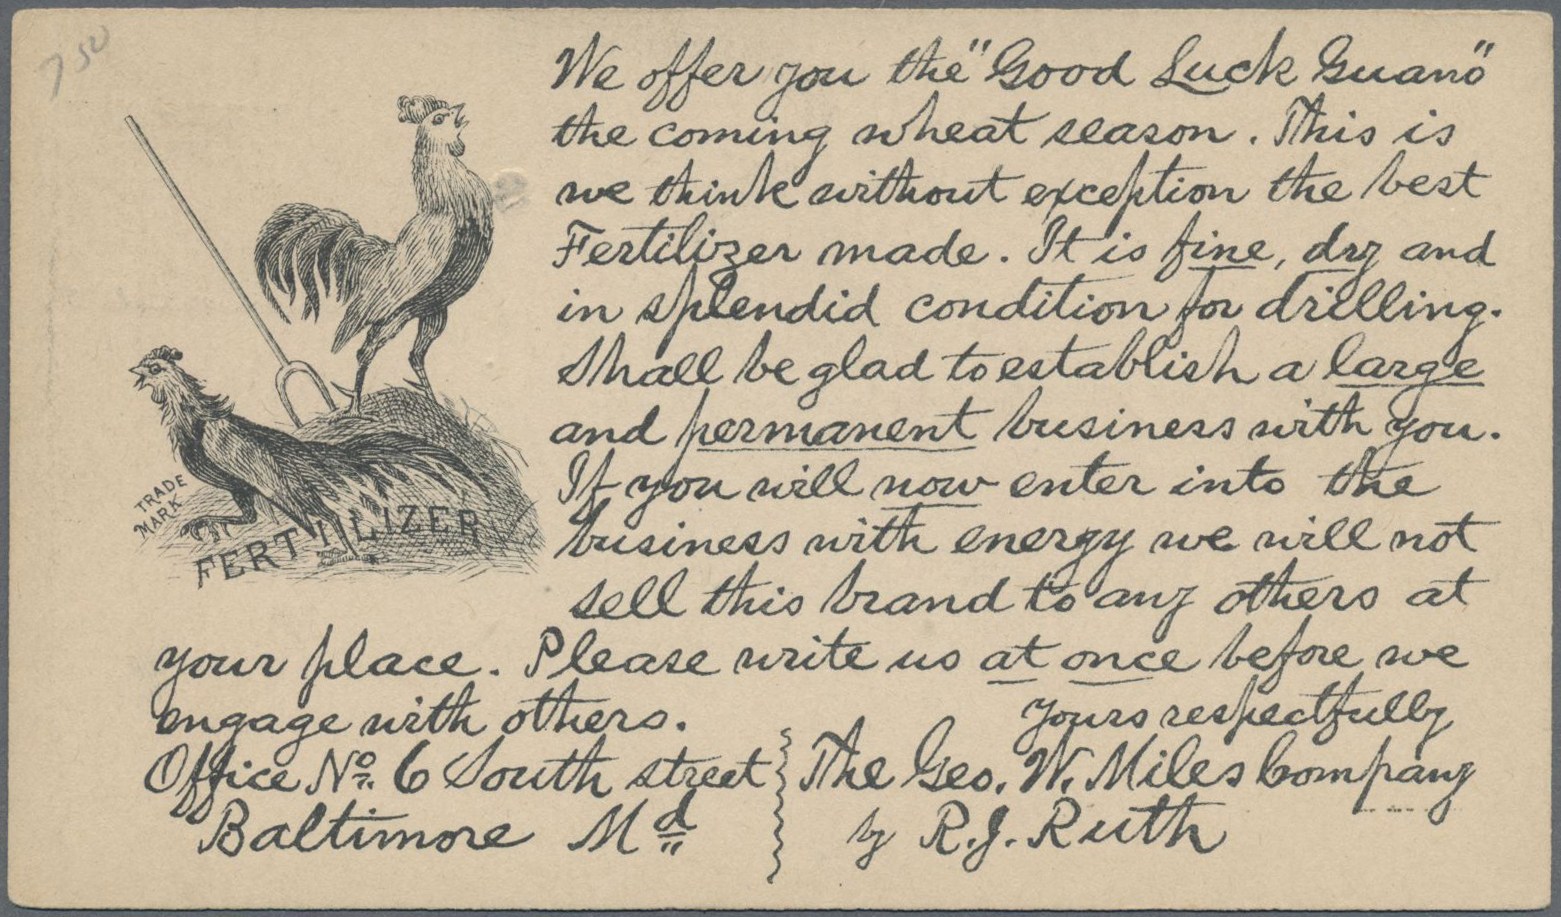 7 50
We offer you the "Good Luck Guano"
the coming wheat season. This is
we think without exception the best
Fertilizer made. It is fine, dry and
in splendid condition for drilling.
Shall be glad to establish a large
and permanent business with you.
If you will now enter into the
business with energy we will not
sell this brand to any others at
your place. Please write us at once before we
engage with others.
yours respectfully
Office No. 6 South street
Baltimore Md
The Geo. W. Miles Company
by R.J. Ruth
TRADE
MARK
FERTILIZER